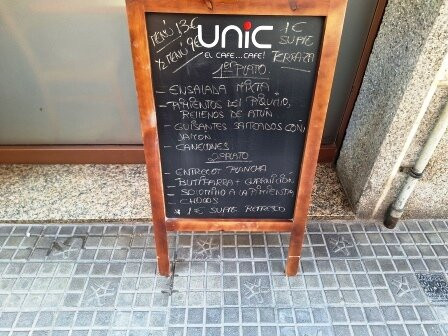 MENÚ 13€
½ MENÚ 9€
UNIC
EL CAFE...CAFE!
1€
SUPLE
TERRAZA
1er PLATO
- ENSALADA MIXTA
- PIMIENTOS DEL PIQUILLO
RELLENOS DE ATÚN
- GUISANTES SALTEADOS CON
JAMON
- CANELONES
2º PLATO
- ENTRECOT PLANCHA
- BUTIFARRA + GUARNICIÓN
- SOLOMILLO A LA PIMIENTA
- CHOCOS
* 1€ SUPLE REFRESCO